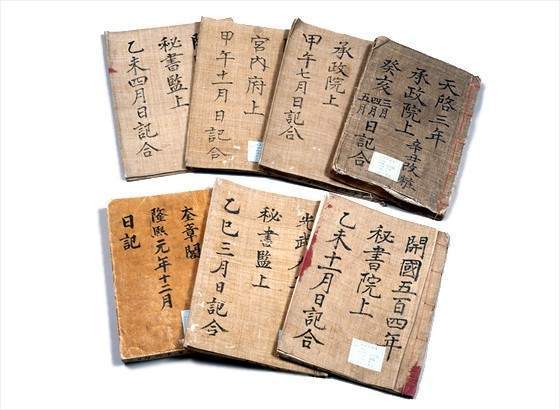 天啓三年
承政院上
辛丑改粧
癸亥三月四月五月日記合
承政院上
甲午七月日記合
宮內府上
甲午十一月日記合
秘書監上
乙未四月日記合
開國五百四年
秘書院上
乙未十一月日記合
光武
秘書監上
乙巳三月日記合
奎章閣
隆熙元年十二月
日記